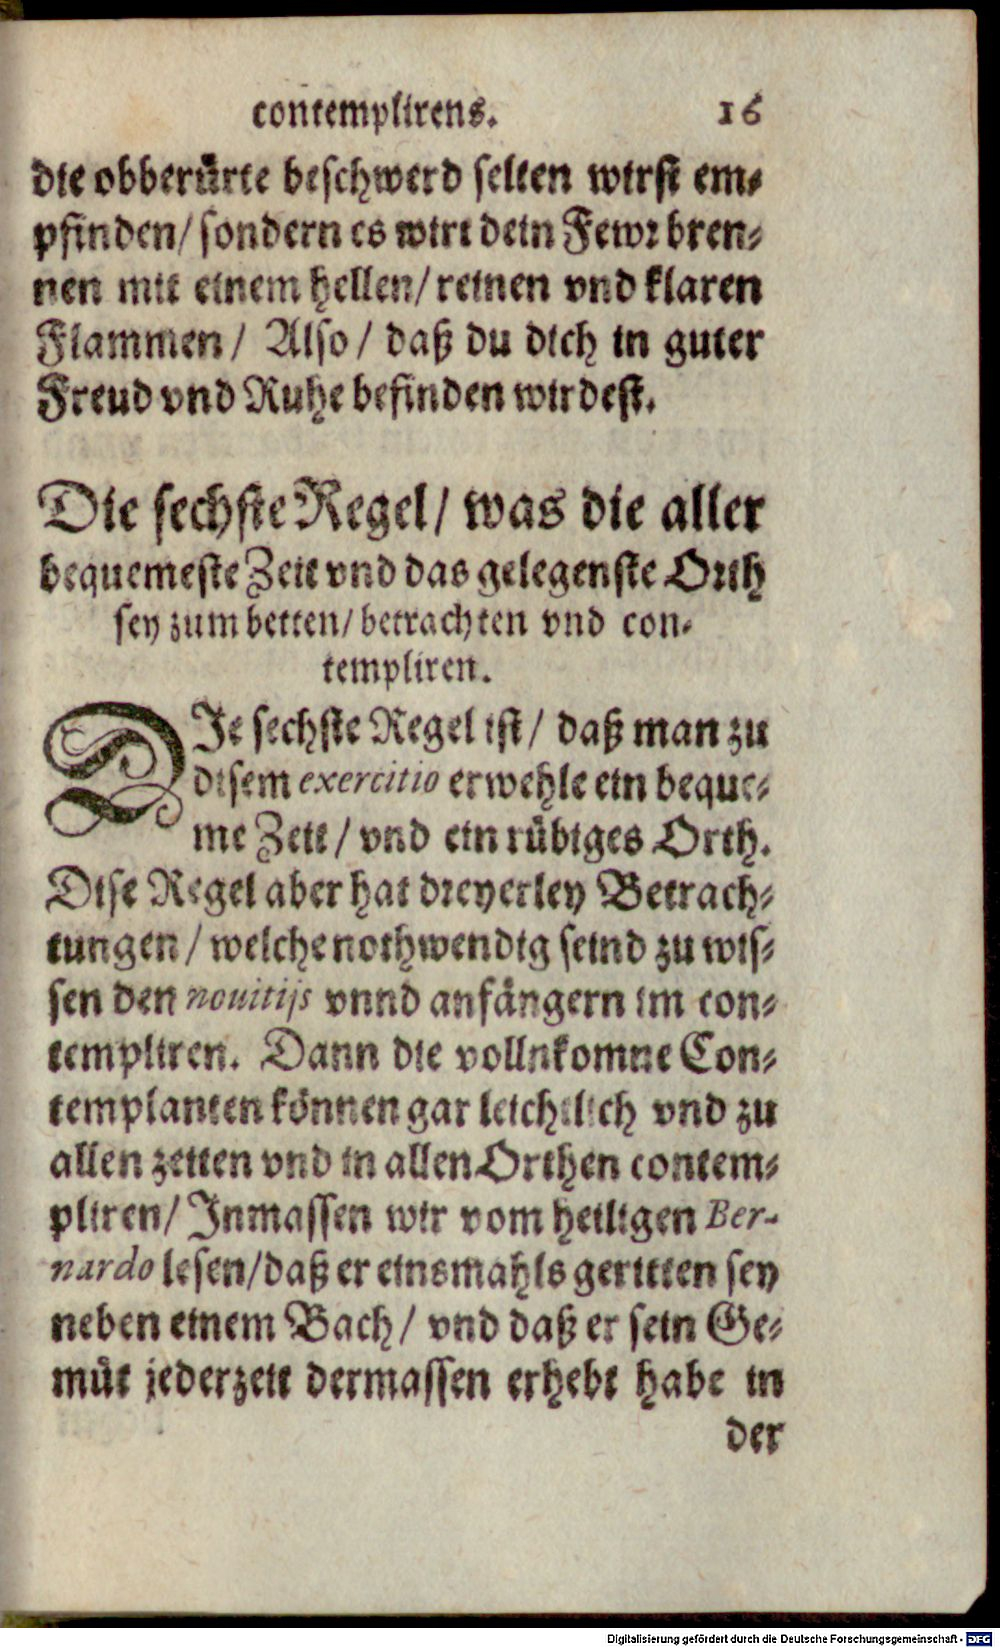 contemplirens. 16
die obberürte beschwerd selten wirst em-
pfinden/ sondern es wirt dein Fewr bren-
nen mit einem hellen/ reinen vnd klaren
Flammen/ Also/ daß du dich in guter
Freud vnd Ruhe befinden wirdest.
Die sechste Regel/ was die aller
bequemeste Zeit vnd das gelegenste Orth
sey zum betten/ betrachten vnd con-
templiren.
DIe sechste Regel ist/ daß man zu
disem exercitio erwehle ein beque-
me Zeit/ vnd ein rübiges Orth.
Dise Regel aber hat dreyerley Betrach-
tungen/ welche nothwendig seind zu wis-
sen den nouitijs vnnd anfängern im con-
templiren. Dann die vollnkomne Con-
templanten können gar leichtlich vnd zu
allen zeiten vnd in allen Orthen contem-
pliren/ Inmassen wir vom heiligen Ber-
nardo lesen/ daß er einsmahls geritten sey
neben einem Bach/ vnd daß er sein Ge-
müt jederzeit dermassen erhebt habe in
der
Digitalisierung gefördert durch die Deutsche Forschungsgemeinschaft - DFG